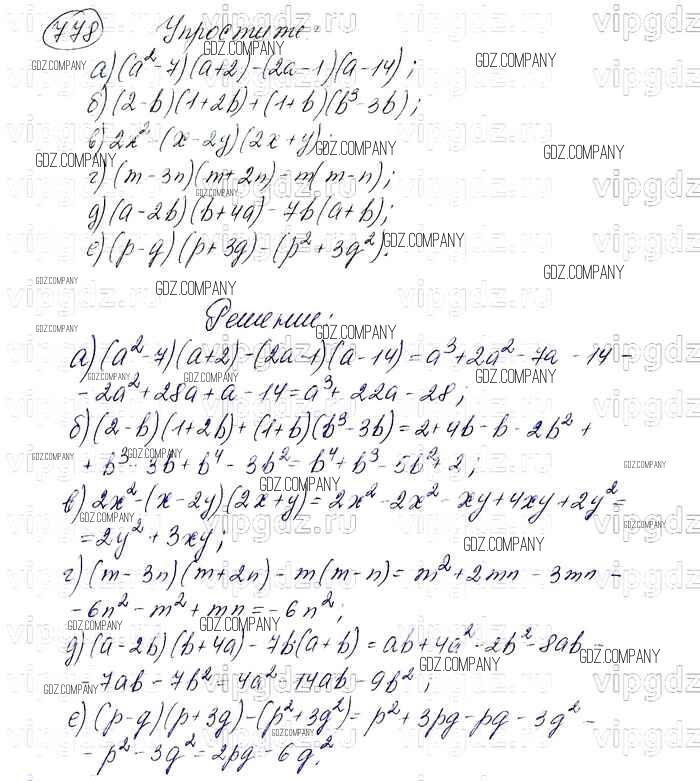 778 Упростите:
а) (a² - 7)(a+2) - (2a - 1)(a - 14);
б) (2 - b)(1+2b) + (1+b)(b³ - 3b);
в) 2x² - (x - 2y)(2x + y);
г) (m - 3n)(m + 2n) - m(m - n);
д) (a - 2b)(b + 4a) - 7b(a + b);
е) (p - q)(p + 3q) - (p² + 3q²).
Решение:
а) (a² - 7)(a+2) - (2a - 1)(a - 14) = a³ + 2a² - 7a - 14 -
- 2a² + 28a + a - 14 = a³ + 22a - 28;
б) (2 - b)(1+2b) + (1+b)(b³ - 3b) = 2 + 4b - b - 2b² +
+ b³ - 3b + b⁴ - 3b² = b⁴ + b³ - 5b² + 2;
в) 2x² - (x - 2y)(2x + y) = 2x² - 2x² - xy + 4xy + 2y² =
= 2y² + 3xy;
г) (m - 3n)(m + 2n) - m(m - n) = m² + 2mn - 3mn -
- 6n² - m² + mn = - 6n²;
д) (a - 2b)(b + 4a) - 7b(a + b) = ab + 4a² - 2b² - 8ab -
- 7ab - 7b² = 4a² - 14ab - 9b²;
е) (p - q)(p + 3q) - (p² + 3q²) = p² + 3pq - pq - 3q² -
- p² - 3q² = 2pq - 6q².
GDZ.COMPANY
vipgdz.ru